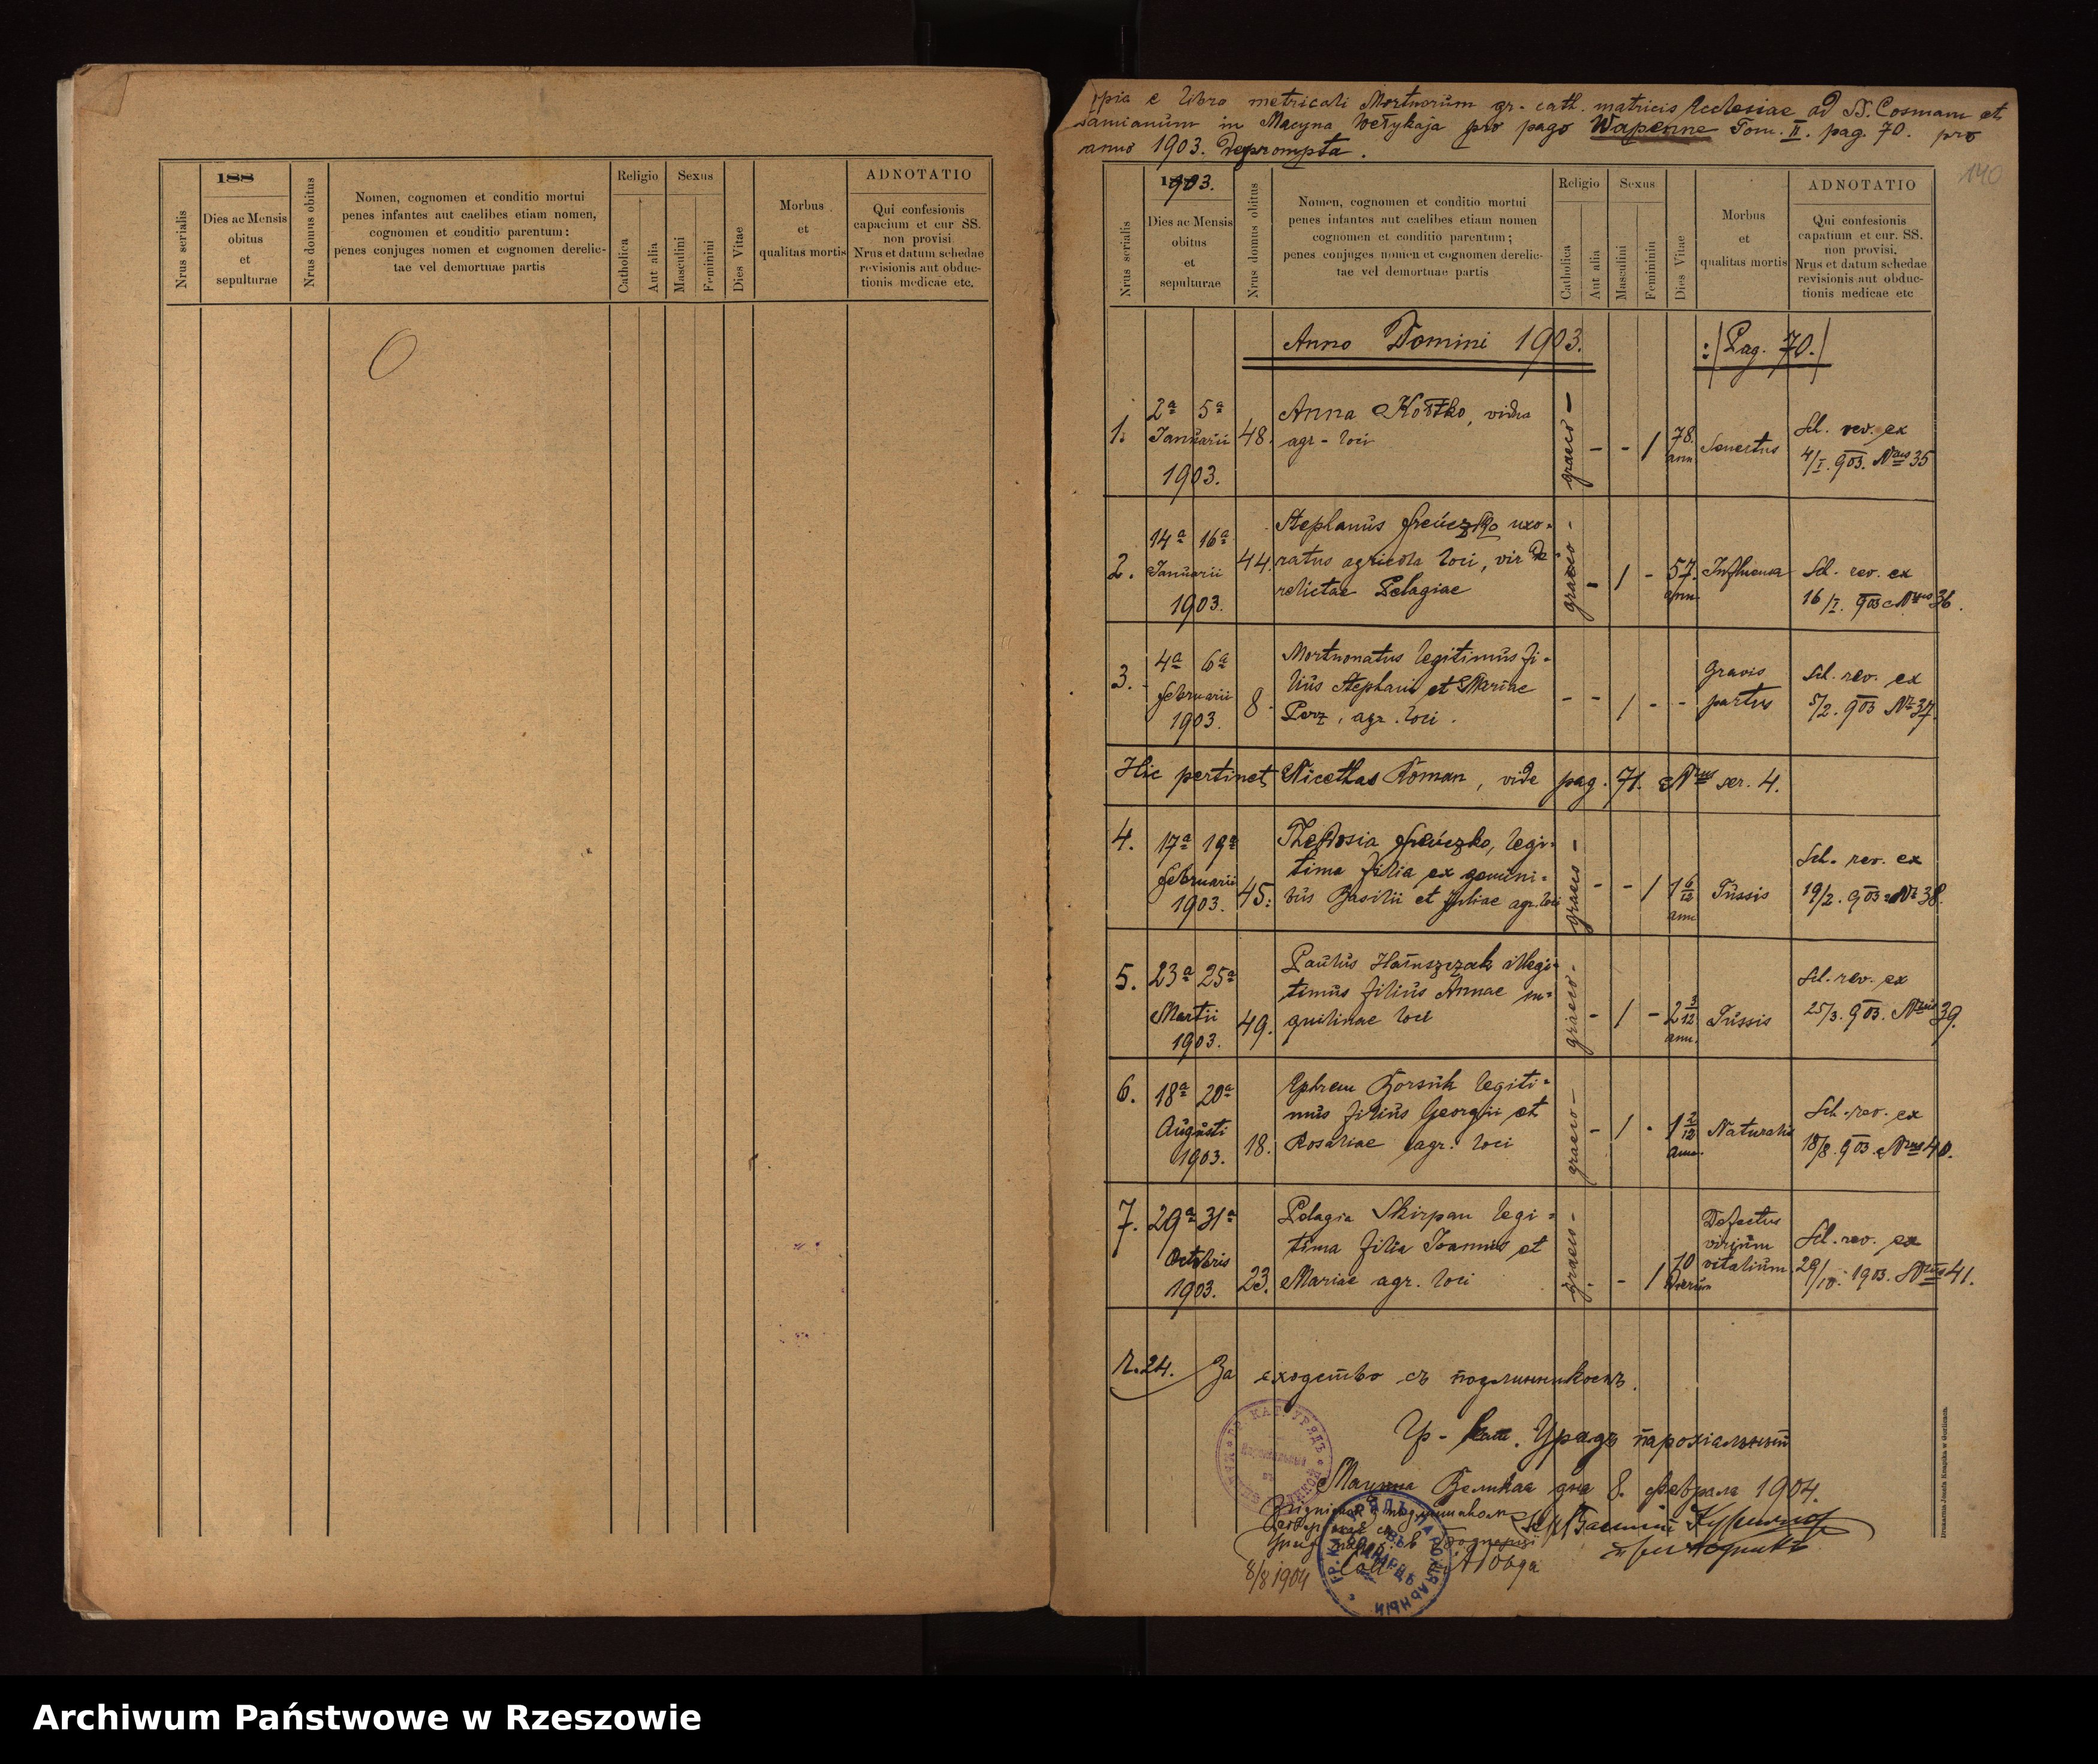 188
Nrus serialis
Dies ac Mensis
obitus
et
sepulturae
Nrus domus obitus
Nomen, cognomen et conditio mortui
penes infantes aut caelibes etiam nomen,
cognomen et conditio parentum:
penes conjuges nomen et cognomen derelic-
tae vel demortuae partis
Religio
Catholica
Aut alia
Sexus
Masculini
Feminini
Dies Vitae
Morbus
et
qualitas mortis
ADNOTATIO
Qui confesionis
capacium et cur SS.
non provisi
Nrus et datum schedae
revisionis aut obduc-
tionis medicae etc.
opia e libro metricali Mortuorum gr. cath. matricis Ecclesiae ad SS. Cosmam et
Damianum in Macyna Wełykaja pro pago Wapenne Tom. II. pag. 70. pro
anno 1903. Deprompta.
140
1903.
Nrus serialis
Dies ac Mensis
obitus
et
sepulturae
Nrus domus obitus
Nomen, cognomen et conditio mortui
penes infantes aut caelibes etiam nomen
cognomen et conditio parentum;
penes conjuges nomen et cognomen derelic-
tae vel demortuae partis
Religio
Catholica
Aut alia
Sexus
Masculini
Femininin
Dies Vitae
Morbus
et
qualitas mortis
ADNOTATIO
Qui confesionis
capatium et cur. SS.
non provisi,
Nrus et datum schedae
revisionis aut obduc-
tionis medicae etc
Anno Domini 1903. :/Pag. 70./
2a 5a Anna Kostko, vidua graeco - Sch. rev. ex
1. Januarii 48. agr - loci - - / 78. ann Senectus 4/I. 903. Nrus 35
1903.
Stephanus uxo-
14a 16a 44. ratus agricola loci, vir de-
2. Januarii relictae Pelagiae graeco - - / - 57. ann. Influenza Sch. rev. ex
1903. 16/I. 903 Nrus 36.
4a 6a Mortuonatus legitimus fi- Gravis Sch. rev. ex
3. Februarii 8. lius Stephani et Mariae - - / - - partus 5/2. 903 Nr 37.
1903. Perz, agr. loci.
Hic pertinet Nicethas Roman, vide pag. 71. Nrus ser. 4.
4. 17a 19a Theodosia legi-
Februarii tima filia ex gemini- Sch. rev. ex
1903. 45. bus Basilii et Juliae agr. loci graeco - - - / 1 6/12 ann Tussis 19/2. 903 Nr 38.
5. 23a 25a Paulus illegi-
Martii timus filius Annae in- Sch. rev. ex
1903. 49. quilinae loci graeco - - / - 2 3/12 ann. Tussis 25/3. 903. Nrus 39.
6. 18a 20a Ephrem Borsuk legiti-
Augusti mus filius Georgii et Sch. rev. ex
1903. 18. Rosaliae agr. loci graeco - - / - 1 2/12 ann. Naturalis 18/8. 903. Nrus 40.
7. 29a 31a Pelagia Skirpan legi- Defectus
Octobris tima filia Joannis et virium Sch. rev. ex
1903. 23. Mariae agr. loci graeco - - - / 10 dierum vitalium 29/10. 1903. Nrus 41.
Ч. 24. За сходство съ подлинникомъ.
Гр - кат. Урядъ парохіальный
Мацина Великая дня 8. Февраля 1904.
8/8 1904
Drukarnia Józefa Knapika w Gorlicach.
Archiwum Państwowe w Rzeszowie